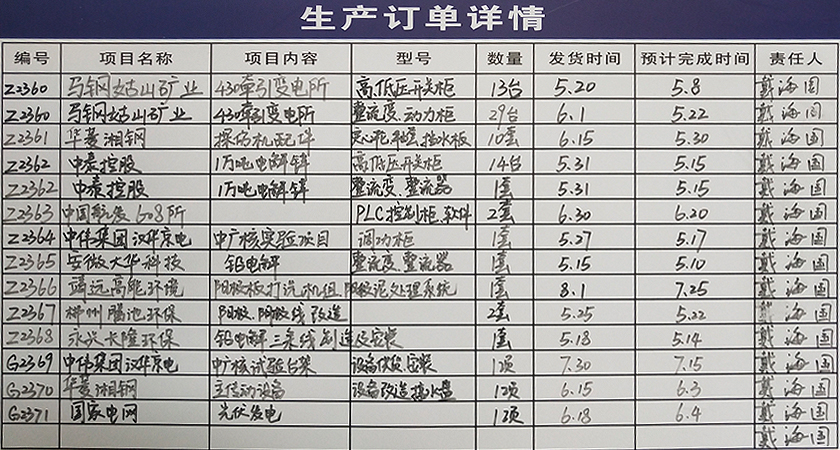 生产订单详情
编号 项目名称 项目内容 型号 数量 发货时间 预计完成时间 责任人
Z2360 马钢姑山矿业 430牵引变电所 高低压开关柜 13台 5.20 5.8 戴海国
Z2360 马钢姑山矿业 430牵引变电所 整流变.动力柜 29台 6.1 5.22 戴海国
Z2361 华菱湘钢 挡水板 10套 6.15 5.30 戴海国
Z2362 中泰控股 1万吨电解锌 高低压开关柜 14台 5.31 5.15 戴海国
Z2362 中泰控股 1万吨电解锌 整流变.整流器 1套 5.31 5.15 戴海国
Z2363 中国航发608所 PLC控制柜.软件 2套 6.30 6.20 戴海国
Z2364 中伟集团汉华京电 中广核实验项目 调功柜 1套 5.27 5.17 戴海国
Z2365 安徽大华科技 铅电解 整流变.整流器 1套 5.15 5.10 戴海国
Z2366 靖远高能环境 阳极板打洗机组.阳极泥处理系统 8.1 7.25 戴海国
Z2367 郴州腾驰环保 阳极.阴极线改造 2套 5.25 5.22 戴海国
Z2368 永兴长隆环保 铅电解三条线制造及安装 1套 5.18 5.14 戴海国
G2369 中伟集团汉华京电 中广核试验台架 设备供货.安装 1项 7.30 7.15 戴海国
G2370 华菱湘钢 主传动设备 设备改造 12项 6.15 6.3 戴海国
G2371 国家电网 光伏发电 12项 6.18 6.4 戴海国
戴海国